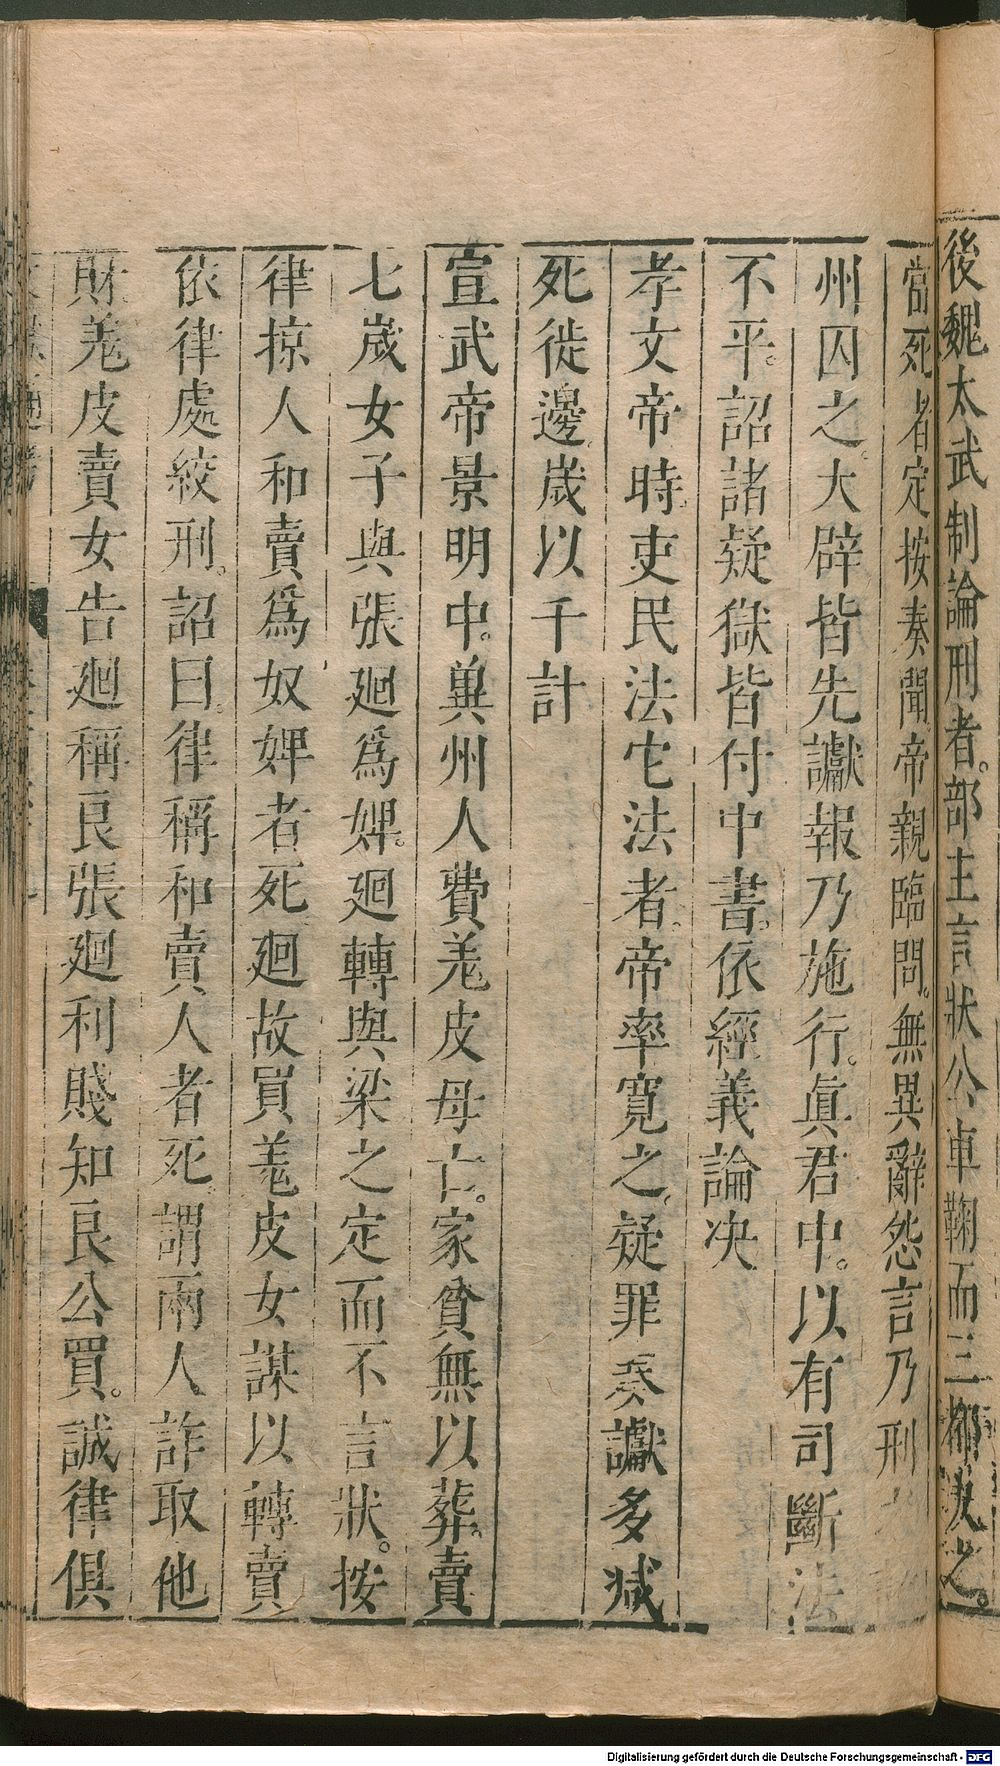 後魏太武制論刑者部主言狀公車鞠而三都決之
當死者定按奏聞帝親臨問無異辭怨言乃刑
州囚之大辟皆先讞報乃施行眞君中以有司斷法
不平詔諸疑獄皆付中書依經義論決
孝文帝時吏民法宅法者帝率寬之疑罪奏讞多減
死徙邊歲以千計
宣武帝景明中兾州人費羗皮母亡家貧無以葬賣
七歲女子與張廻爲婢廻轉與梁之定而不言狀按
律掠人和賣爲奴婢者死廻故買羗皮女謀以轉賣
依律處絞刑詔曰律稱和賣人者死謂兩人詐取他
財羗皮賣女告廻稱良張廻利賤知良公買誠律俱
Digitalisierung gefördert durch die Deutsche Forschungsgemeinschaft - DFG